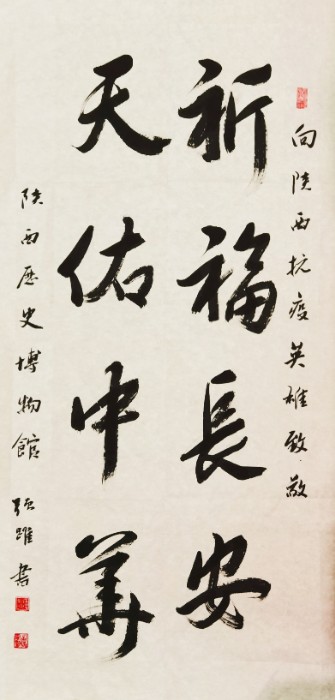 向陕西抗疫英雄致敬
祈福長安
天佑中華
陕西歷史博物館 强躍書